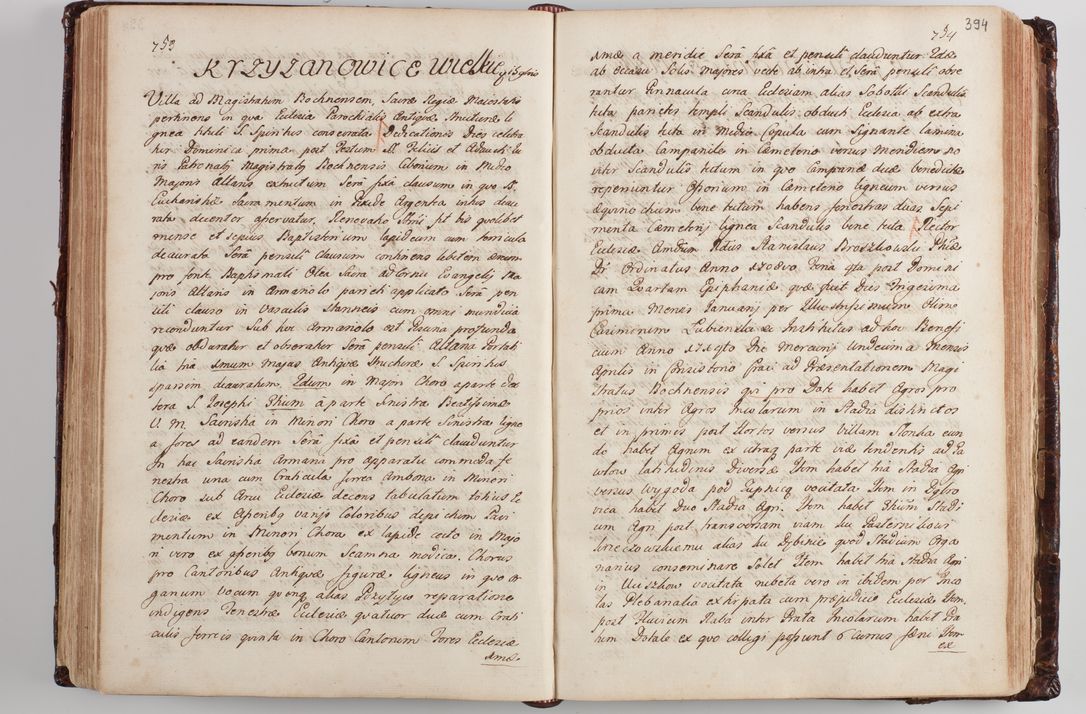 753
KRZYZANOWICE Wielkie
Villa ad Magistratum Bochnensem, Sacræ Regiæ Maiestatis
pertinens in qua Ecclesia Parochialis Antiquæ Structuræ li
gnea tituli S. Spiritus consecrata Dedicationis Dies celebra
tur Dominica prima post Festum SS. Felicis et Adaucti Iu
ris Patronatus Magistratus Bochnensis Ciborium in Medio
Majoris Altaris extructum Serâ fixâ clausum in quo SS.
Eucharistiæ Sacramentum in Pixide Argentea intus deau
rata decenter asservatur, Renovatio Ssmi fit bis quolibet
mense et sepius Baptisterium lapideum cum torricula
deaurata Serâ pensili clausum continens lebetem æreum
pro fonte Baptismati Olea Sacra ad Cornu Evangelij Ma
joris Altaris in Armariolo parieti applicato Serâ pen
sili clauso in Vasculis Stanneis cum omni munditia
reconduntur Sub hoc Armariolo est Piscina profunda
quæ obduratur et obseratur Serâ pensili Altaria Portati
lia tria unum Majus Antiquæ Structuræ S. Spiritus
sparsim deauratum, 2dum in Majori Choro a parte dex
tera S. Josephi 3tium à parte Sinistra Beatissimæ
V. M. Sacristia in Minori Choro a parte Sinistra ligne
a fores ad eandem Serâ fixâ et pensili clauduntur
In hac Sacristia Armaria pro apparatu commoda fe
nestra una cum Craticula ferrea Ambona in Minori
Choro sub Arcu Ecclesiæ decens tabulatum totius Ec
clesiæ ex Asseribus varijs Coloribus depictum Pavi
mentum in Minori Choro ex lapide cocto in Majo
ri vero ex asseribus bonum Scamna modica. Chorus
pro Cantoribus Antiquæ figuræ ligneus in quo or
ganum Vocum quinq alias Pozytyw reparatione
indigens Fenestræ Ecclesiæ quatuor duæ cum Crati
culis ferreis quinta in Choro Cantorum Fores Ecclesiæ
unæ
754
394
unæ a meridie Serâ fixâ et pensili clauduntur 2dæ
ab occasu Solis majores vecte ab intra et Serâ pensili obse
rantur Pinnacula circa Ecclesiam alias Soboty Scandulis
tecta parietes templi Scandulis obducti Ecclesia ab extra
Scandulis tecta in Medio Copula cum Signante lamina
obducta Campanile in Cæmeterio versus Meridiem no
viter Scandulis tectum in quo Campanæ duæ benedictæ
reperiuntur Ossorium in Cæmeterio ligneum versus
æquinoctium bene tectum habens fenestras duas Sepi
menta Cæmeterij lignea Scandulis bene tecta. Rector
Ecclesiæ Amdum Rdus Stanislaus Broszkowski
Ordinatus Anno 1708vo, Feria post Domini
cam Quartam Epiphaniæ quæ fuit Dies Trigesima
prima Mensis Januarij per Illustrissimum Olim
Casimirum Lubienski Institutus ad hoc Benefi
cium Anno Die Mercurij Undecima Mensis
Aprilis in Consistorio ad Præsentationem Magi
stratus Bochnensis qui pro Dote habet Agros pro
prios inter Agros Incolarum in Stadia distinctos
et in primis post Hortos versus Villam Słomka eun
do habet Agrum ex utraq parte viæ tendentis ad Pa
wlow latitudinis Diversæ Item habet tria Stadia Agri
versus Wygoda pod vocitata Item in
vica habet Duo Stadia Agri. Item habet 3tium Stadi
um Agri post transversam viam seu Pasternikowi
alias su Dębinie quod Stadium Orga
narius conseminare Solet Item habet tria Stadia Agri
in vocitata rubeta vero in ibidem per Inco
las Plebanalia extirpata cum præjudicio Ecclesiæ Item
post fluvium Raba inter Prata Incolarum habet Pra
tum Dotale ex quo colligi possunt 6 currus fæni Item
ex